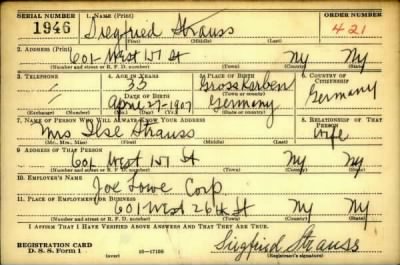 SERIAL NUMBER 1. NAME (Print) ORDER NUMBER
1946 Siegfried Strauss 421
(First) (Middle) (Last)
2. ADDRESS (Print)
601 West 151 St Ny Ny
(Number and street or R. F. D. number) (Town) (County) (State)
3. TELEPHONE 4. AGE IN YEARS 5. PLACE OF BIRTH 6. COUNTRY OF CITIZENSHIP
33 Grosskorben
DATE OF BIRTH (Town or county)
April-27-1907 Germany Germany
(Exchange) (Number) (Mo.) (Day) (Yr.) (State or country)
7. NAME OF PERSON WHO WILL ALWAYS KNOW YOUR ADDRESS 8. RELATIONSHIP OF THAT PERSON
Mrs Ilse Strauss Wife
(Mr., Mrs., Miss) (First) (Middle) (Last)
9. ADDRESS OF THAT PERSON
601 West 151 St Ny Ny
(Number and street or R. F. D. number) (Town) (County) (State)
10. EMPLOYER'S NAME
Joe Lowe Corp
11. PLACE OF EMPLOYMENT OR BUSINESS
601 West 26th St Ny Ny
(Number and street or R. F. D. number) (Town) (County) (State)
I AFFIRM THAT I HAVE VERIFIED ABOVE ANSWERS AND THAT THEY ARE TRUE.
REGISTRATION CARD
D. S. S. Form 1 (over) 16—17105 Siegfried Strauss
(Registrant's signature)